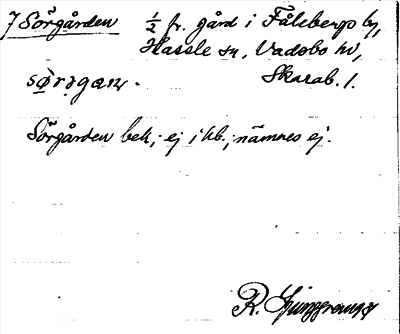 7 Sörgården ½ fr. gård i Fålebergs by,
Hassle sn, Vadsbo hd,
Skarab. l.
Sörgården bek., ej i kb.; nämnes ej.
R. Ljunggren